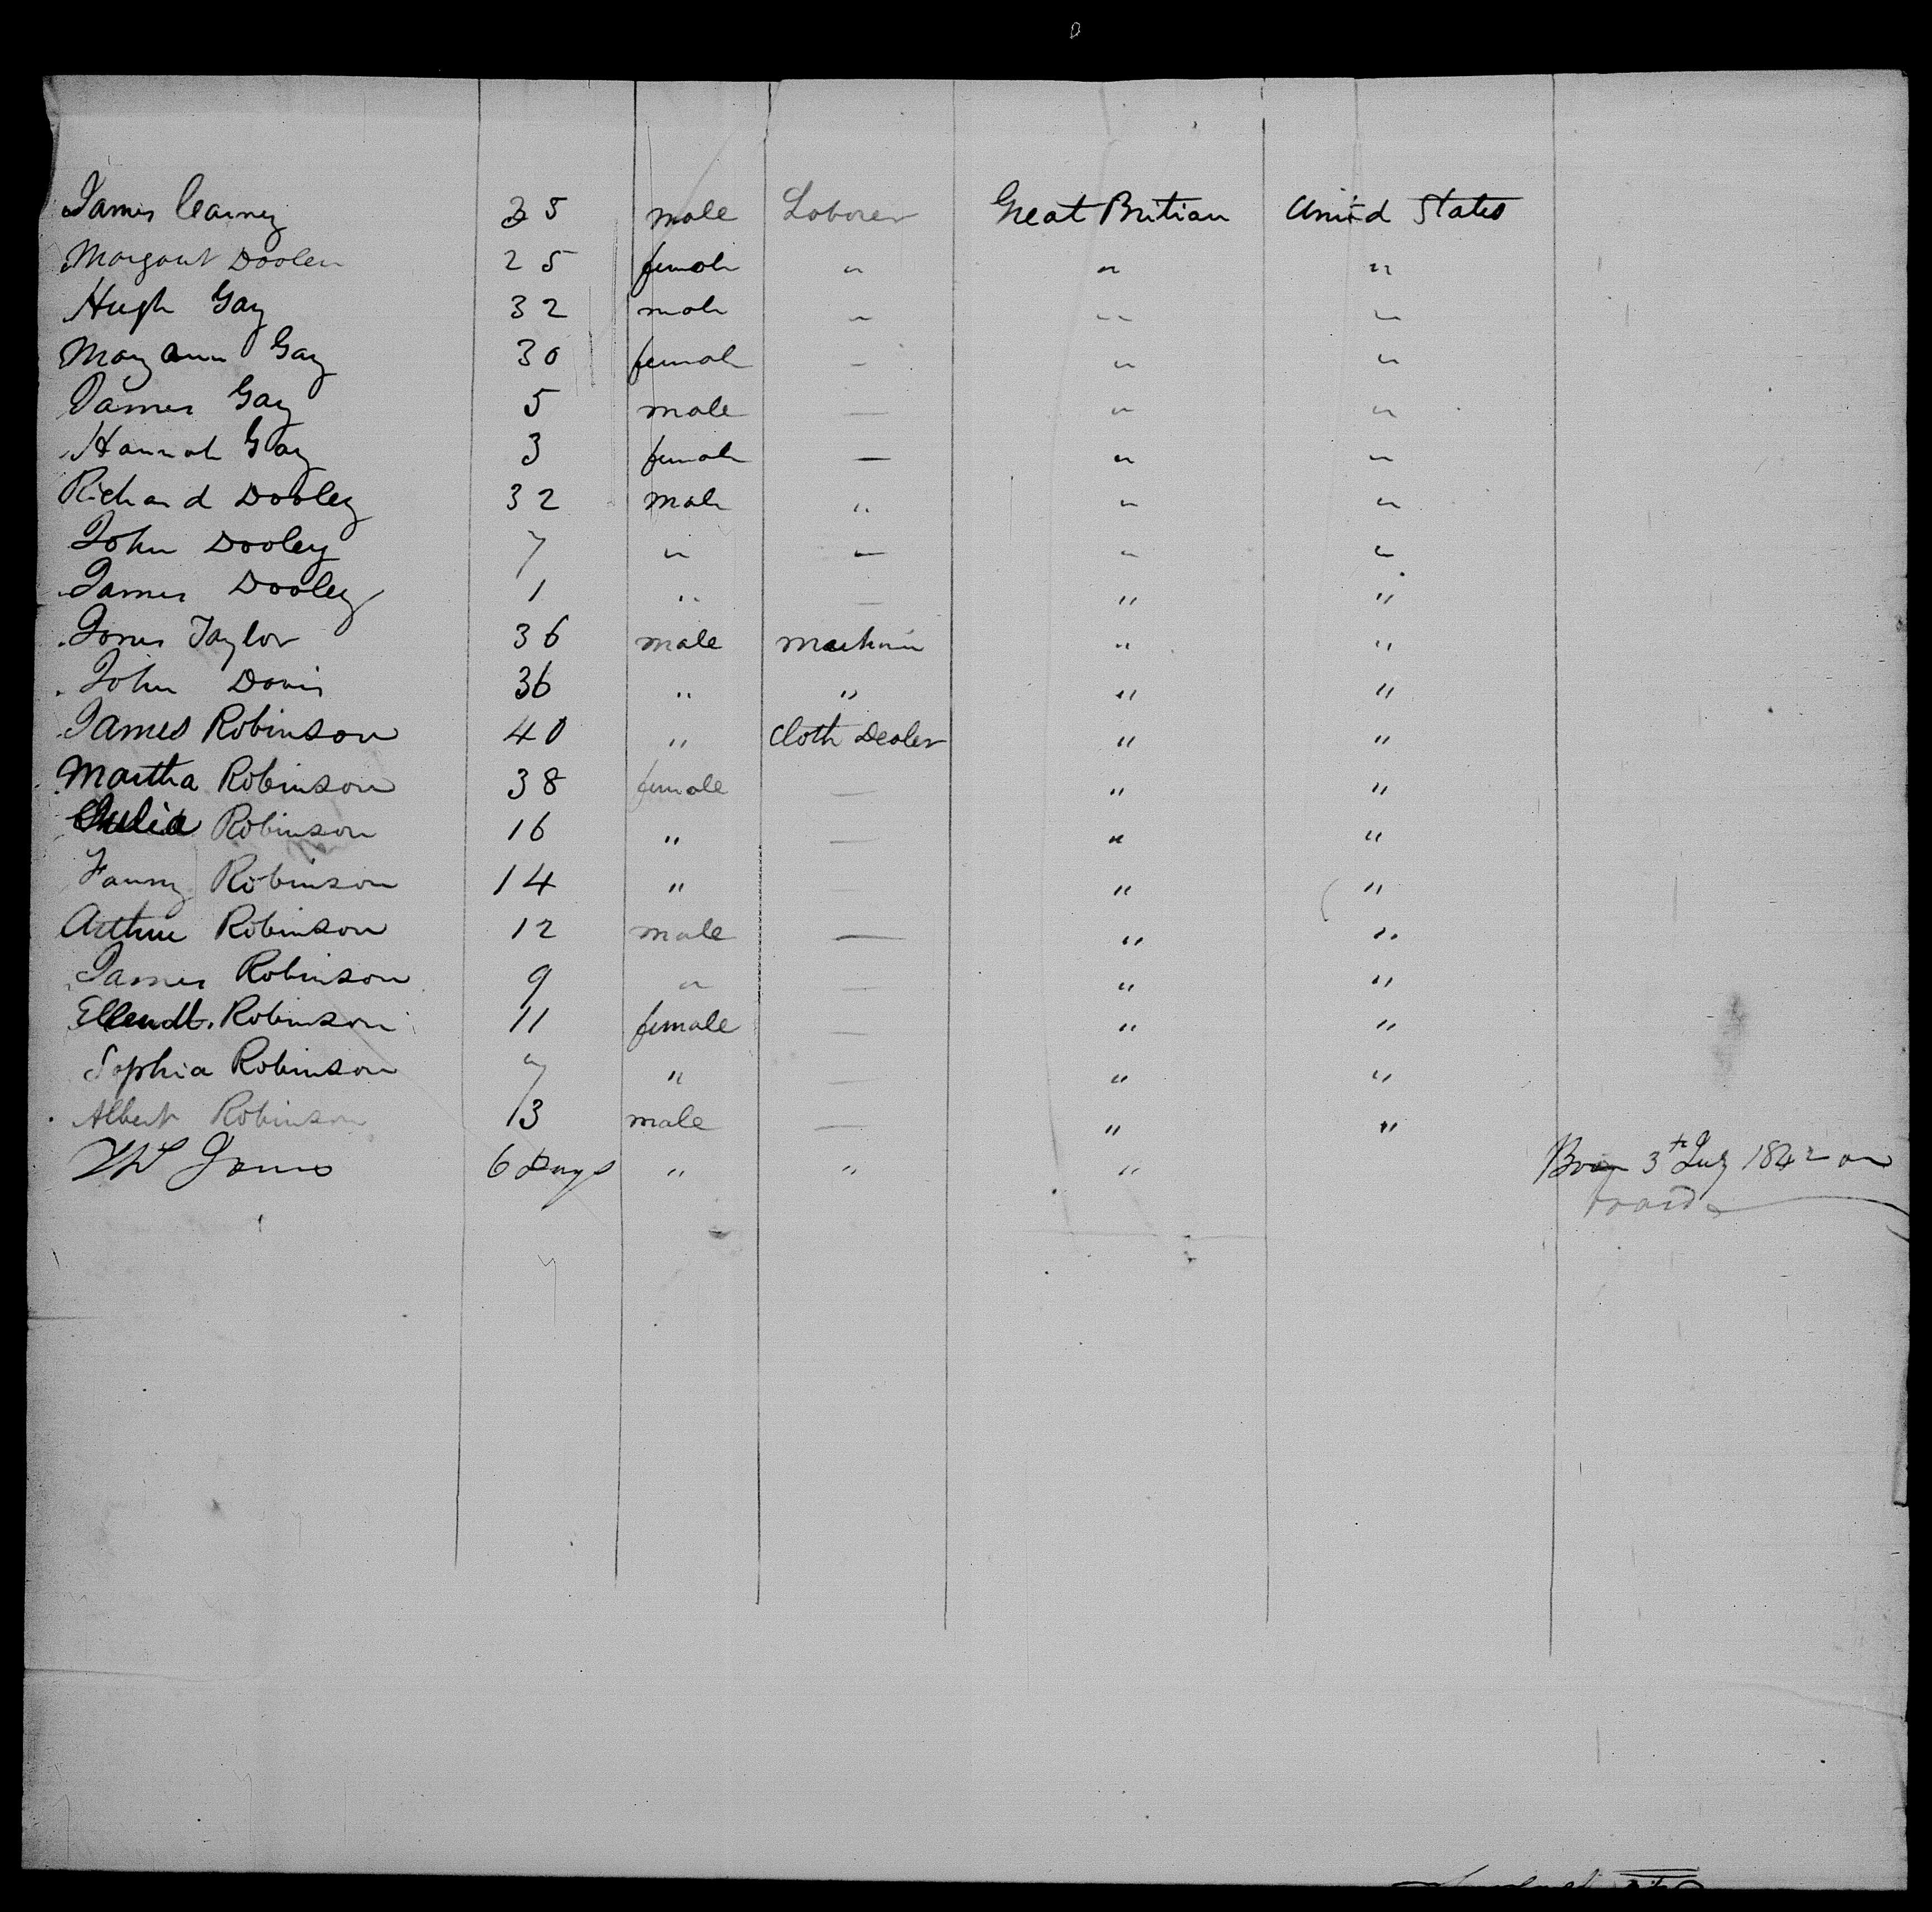 James Cearney 35 male Laborer Great Britian United States
Margaret Doolen 25 female " " "
Hugh Gay 32 male " " "
Mary Ann Gay 30 female — " "
James Gay 5 male — " "
Hannah Gay 3 female — " "
Richard Dooley 32 male " " "
John Dooley 7 " — " "
James Dooley 1 " — " "
Taylor 36 male " "
John Davis 36 " " " "
James Robinson 40 " Cloth Dealer " "
Martha Robinson 38 female — " "
Julia Robinson 16 " — " "
Fanny Robinson 14 " — " "
Arthur Robinson 12 male — " "
James Robinson 9 " — " "
Robinson 11 female — " "
Sophia Robinson 7 " — " "
Albert Robinson 13 male — " "
6 Days " " " Born 3th July 1842 on
board